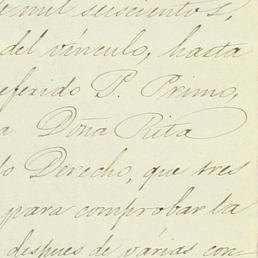 o mil seiscientos,
del vínculo, hasta
eferido P. Primo,
a Doña Rita
lo Derecho, que tres
para comprobar la
despues de várias con-